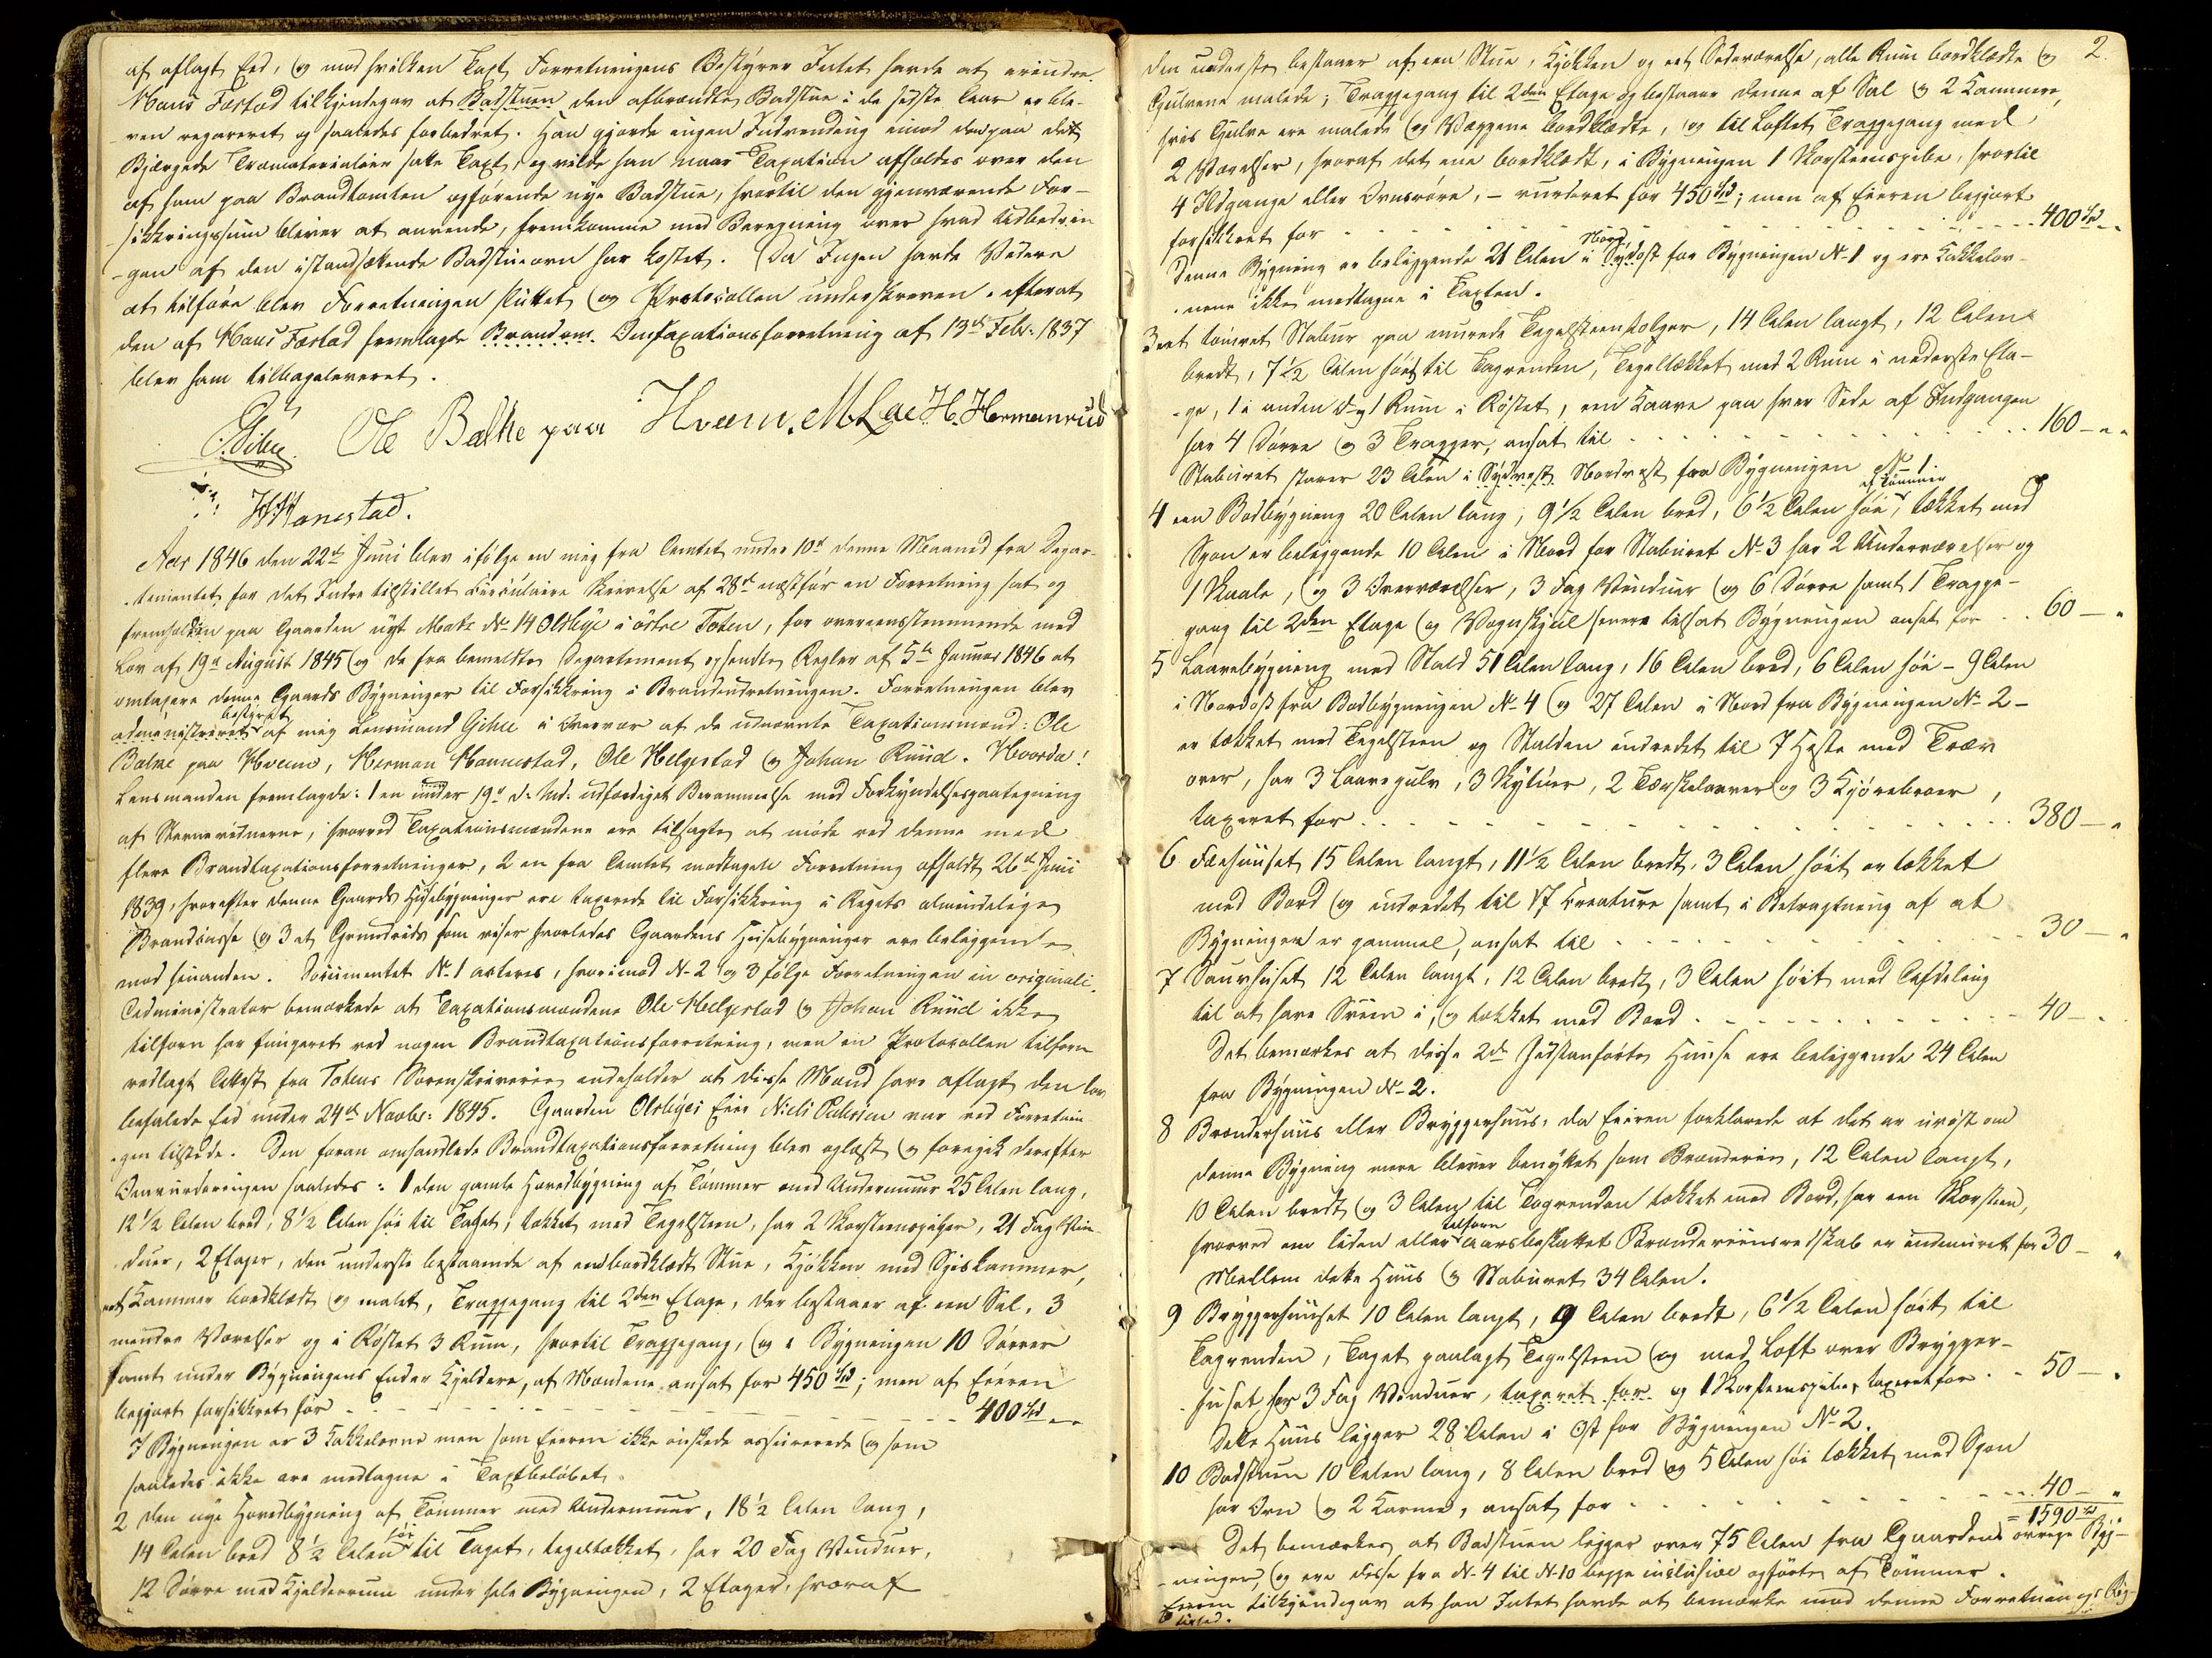 af aflagt Eed, og mod hvilken Taxt Forretningens Bestyrer Intet havde at erindre.
Hans Færstad tilkjendegav at Badstuen den afbrændte Badstue i de sidste Aar er ble-
ven repareret og saaledes forbedret. Han gjorde ingen Indvending imod den paa det
Bjærgede Træmaterialier satte Taxt, og vilde han naar Taxation afholdes over den
af ham paa Brandtomten opførende nye Badstue, hvortil den gjenværende For-
sikkringssum bliver at anvende, fremkomme med Beregning over hvad Udbedrin
-gen af den istandsættende Badstueovn har kostet. Da Ingen havde Videre
at tilføre blev Forretningen sluttet og Protocollen underskreven. efterat
den af Hans Færstad fremlagde Brandom Omtaxationsforretning af 13de Febr: 1837
blev ham tilbageleveret.
Gihle. Ole Balke paa Hveem. M. Lae H. Hermanrud
H Hanestad.
Aar 1846 den 22de Juni blev ifølge en mig fra Amtet under 10de denne Maaned fra Depar-
-tementet for det Indre tilstillet circulaire Skrivelse af 28de næstfør en Forretning sat og
fremholden paa Gaarden nyt Matr No 14 Olsbye i østre Toten, for overeensstemmende med
Lov af 19de August 1845 og de fra bemeldte Departement opsendte Regler af 5te Januar 1846 at
omtaxere denne Gaards Bygninger til Forsikkring i Brandindretningen. Forretningen blev
administreret bestyret af mig Lensmand Gihle i Overvær af de udnævnte Taxationsmænd: Ole
Balke paa Hveem, Herman Hannestad, Ole Helgestad og Johan Ruud. Hvorda!
Lensmanden fremlagde: 1 en under 19de d: Md: udfærdiget Berammelse med Forkyndelsespaategning
af Stævnevidnerne, hvorved Taxationsmændene ere tilsagte at møde ved denne med
flere Brandtaxationsforretninger, 2 en fra Amtet modtagen Forretning afholdt 26de Juni
1839, hvorefter denne Gaards Huusebygninger ere taxerede til Forsikkring i Rigets almindelige
Brandcasse og 3 et Grundrids som viser hvorledes Gaardens Huusebygninger ere beliggende
mod hinanden. Documentet No 1 acteres, hvorimod No 2 og 3 følge Forretningen in originali.
Administrator bemærkede at Taxationsmændene Ole Helgestad og Johan Ruud ikke
tilforn har fungeret ved nogen Brandtaxationsforretning, men en Protocollen tilforn
vedlagt Attest fra Totens Sorenskriverie indeholder at disse Mænd have aflagt den lov
befalede Eed under 24de Novbr: 1845. Gaarden Olsbyes Eier Niels Pedersen var ved Forretnin
-gen tilstede. Den foran omhandlede Brandtaxationsforretning blev oplæst og foregik derefter
Omvurderingen saaledes: 1 den gamle Hovedbygning af Tømmer med Undermuur 25 Alen lang,
12 1/2 Alen bred, 8 1/2 Alen høi til Taget, tækket med Tegelsteen, har 2 Skorsteenspiper, 21 Fag Vin
duer, 2 Etager, den underste bestaaende af en bordklædt Stue, Kjøkken med Spiskammer,
et Kammer bordklædt og malet, Trappegang til 2den Etage, der bestaaer af een Sal, 3
mindre Værelser og i Røstet 3 Rum, hvortil Trappegang, og i Bygningen 10 Dørrer
samt under Bygningens Ender Kjeldere, af Mændene ansat for 450 Spd; men af Eieren
begjært forsikkret for 400 Spd „ „
I Bygningen er 3 Kakkelovne men som Eieren ikke ønskede assurerede og som
saaledes ikke ere medtagne i Taxtbeløbet.
2 den nye Hovedbygning af Tømmer med Undermuur, 18 1/2 Alen lang,
14 Alen bred 8 1/2 Alen høi til Taget, tegeltækket, har 20 Fag Vinduer,
12 Dørre med Kjelderrum under hele Bygningen, 2 Etager, hvoraf
2.
den underste bestaaer af een Stue, Kjøkken og eet Sideværelse, alle Rum bordklædte og
Gulvene malede; Trappegang til 2den Etage og bestaaer denne af Sal og 2 Kammere,
hvis Gulve ere malede og Væggene bordklædte, og til Loftet Trappegang med
2 Værelser, hvoraf det ene bordklædt, i Bygningen 1 Skorsteenspibe, hvortil
4 Ildgange eller Ovnsrøre, – vurderet for 450 Spd; men af Eieren begjært
forsikkret for 400 Spd „ „
Denne Bygning er beliggende 21 Alen i Sydost Nord for Bygningen No 1 og ere Kakkelov-
-nene ikke medtagne i Taxten.
3 eet tømret Stabur paa murede Tegelsteenstolper, 14 Alen langt, 12 Alen
bredt, 7 1/2 Alen høit til Tagrenden, Tegeltækket med 2 Rum i nederste Eta-
-ge, 1 i anden og 1 Rum i Røstet, een Kaave paa hver Side af Indgangen
har 4 Dørre og 3 Trapper, ansat til 160 – „ „
Staburet staaer 23 Alen i Sydvest Nordvest fra Bygningen No 1.
4 een Bodbygning af Tømmer 20 Alen lang, 9 1/2 Alen bred, 6 1/2 Alen høi, tækket med
Spon er beliggende 10 Alen i Nord for Staburet No 3 har 2 Underværelser og
1 Skaale, og 3 Overværelser, 3 Fag Vinduer og 6 Dørre samt 1 Trappe-
gang til 2den Etage og Vognskjul senere tilsat Bygningen ansat for 60 – „
5 Laavebygning med Stald 51 Alen lang, 16 Alen bred, 6 Alen høi – 9 Alen
i Nordost fra Bodbygningen No 4 og 27 Alen i Nord fra Bygningen No 2 –
er tækket med Tegelsteen og Stalden indredet til 7 Heste med Træv
over, har 3 Laavegulv, 3 Skytuer, 2 Tærskelaaver og 3 Kjørebroer,
taxeret for 380 – „
6 Fæehuuset 15 Alen langt, 11 1/2 Alen bredt, 3 Alen høit er tækket
med Bord og indredet til 17 Creature samt i Betragtning af at
Bygningen er gammel, ansat til 30 – „
7 Sauehuset 12 Alen langt, 12 Alen bredt, 3 Alen høit med Afdeling
til at have Sviin i, og tækket med Bord 40 – „
Det bemærkes at disse 2de sidstanførte Huuse ere beliggende 24 Alen
fra Bygningen No 2.
8 Brænderhuus eller Bryggerhuus, da Eieren forklarede at det er uvist om
denne Bygning mere bliver benyttet som Brænderie, 12 Alen langt,
10 Alen bredt og 3 Alen til Tagrenden tækket med Bord, har een Skorsteen,
hvorved en liden eller tilforn aarsbeskattet Brændeviinsredskab er indmuret for 30 – „
Mellem dette Huus og Staburet 34 Alen.
9 Bryggerhuuset 10 Alen langt, 9 Alen bredt, 6 1/2 Alen høit til
Tagrenden, Taget paalagt Tegelsteen og med Loft over Brygger-
-huset har 3 Fag Vinduer, taxeret for og 1 Korsteenspibe, taxeret for 50 – „
Dette Huus ligger 28 Alen i Ost for Bygningen No 2.
10 Badstuen 10 Alen lang, 8 Alen bred og 5 Alen høi tækket med Spon
har Ovn og 2 Karme, ansat for 40 – „
= 1590 Spd
Det bemærkes at Badstuen ligger over 75 Alen fra Gaardens øvrige Byg-
-ninger, og ere disse fra No 4 til No 10 begge inclusive opførte af Tømmer.
Eieren tilkjendegav at han Intet havde at bemærke mod denne Forretnings Rig-
tighed.